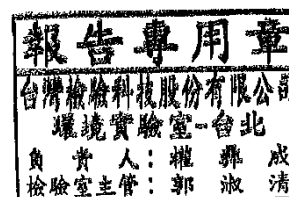 報告專用章
台灣檢驗科技股份有限公司
環境實驗室-台北
負責人：楊　成
檢驗室主管：郭淑清